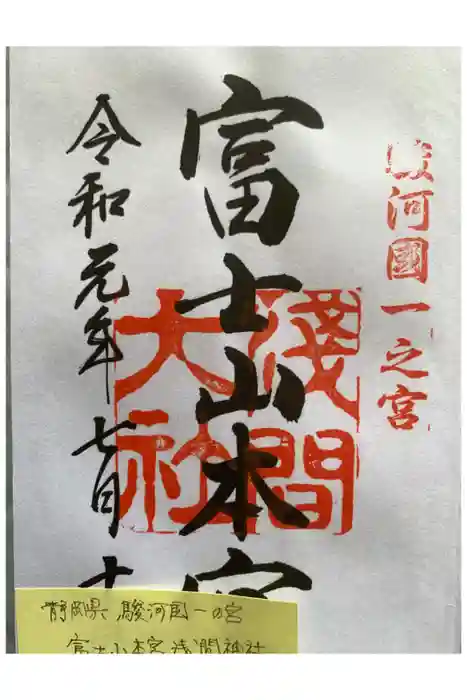 駿河國一之宮
富士山本宮
淺間
大社
令和元年七月十
静岡県 駿河国一の宮
富士山本宮浅間神社